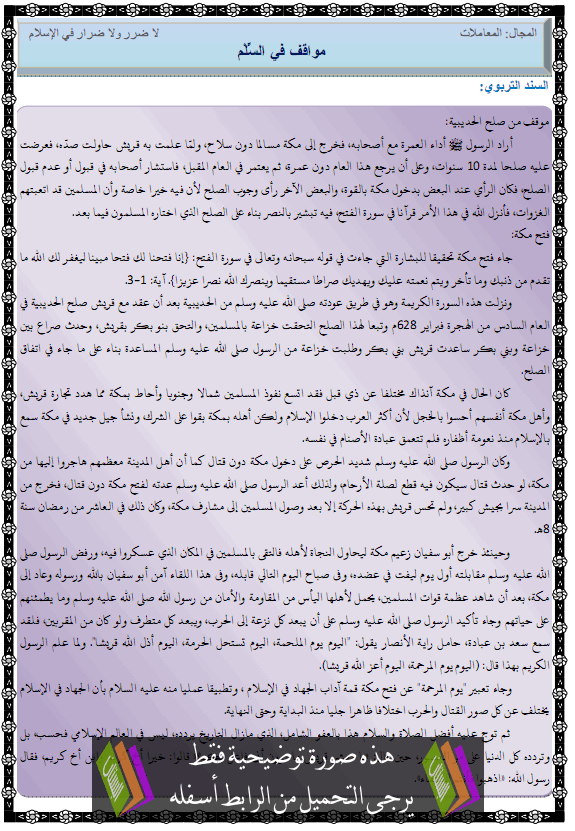 المجال: المعاملات
لا ضرر ولا ضرار في الإسلام
مواقف في السلم
السند التربوي:
موقف من صلح الحديبية:
أراد الرسول ﷺ أداء العمرة مع أصحابه، فخرج إلى مكة مسالما دون سلاح، ولمّا علمت به قريش حاولت صدّه، فعرضت
عليه صلحا لمدة 10 سنوات، وعلى أن يرجع هذا العام دون عمرة، ثم يعتمر في العام المقبل، فاستشار أصحابه في قبول أو عدم قبول
الصلح، فكان الرأي عند البعض بدخول مكة بالقوة، والبعض الآخر رأى وجوب الصلح لأن فيه خيرا خاصة وأن المسلمين قد اتعبتهم
الغزوات، فأنزل الله في هذا الأمر قرآنا في سورة الفتح، فيه تبشير بالنصر بناء على الصلح الذي اختاره المسلمون فيما بعد.
فتح مكة:
جاء فتح مكة تحقيقا للبشارة التي جاءت في قوله سبحانه وتعالى في سورة الفتح: {إنا فتحنا لك فتحا مبينا ليغفر لك الله ما
تقدم من ذنبك وما تأخر ويتم نعمته عليك ويهديك صراطا مستقيما وينصرك الله نصرا عزيزا}. آية: 1-3.
ونزلت هذه السورة الكريمة وهو في طريق عودته صلى الله عليه وسلم من الحديبية بعد أن عقد مع قريش صلح الحديبية في
العام السادس من الهجرة فبراير 628م وتبعا لهذا الصلح التحقت خزاعة بالمسلمين، والتحق بنو بكر بقريش، وحدث صراع بين
خزاعة وبني بكر ساعدت قريش بني بكر وطلبت خزاعة من الرسول صلى الله عليه وسلم المساعدة بناء على ما جاء في اتفاق
الصلح.
كان الحال في مكة آنذاك مختلفا عن ذي قبل فقد اتسع نفوذ المسلمين شمالا وجنوبا وأحاط بمكة مما هدد تجارة قريش،
وأهل مكة أنفسهم أحسوا بالخجل لأن أكثر العرب دخلوا الإسلام ولكن أهله بمكة بقوا على الشرك، ونشأ جيل جديد في مكة سمع
بالإسلام منذ نعومة أظفاره فلم تتعمق عبادة الأصنام في نفسه.
وكان الرسول صلى الله عليه وسلم شديد الحرص على دخول مكة دون قتال كما أن أهل المدينة معظمهم هاجروا إليها من
مكة، لو حدث قتال سيكون فيه قطع لصلة الأرحام، ولذلك أعد الرسول صلى الله عليه وسلم عدته لفتح مكة دون قتال، فخرج من
المدينة سرا بجيش كبير، ولم تحس قريش بهذه الحركة إلا بعد وصول المسلمين إلى مشارف مكة، وكان ذلك في العاشر من رمضان سنة
8هـ.
وحينئذ خرج أبو سفيان زعيم مكة ليحاول النجاة لأهله فالتقى بالمسلمين في المكان الذي عسكروا فيه، ورفض الرسول صلى
الله عليه وسلم مقابلته أول يوم ليفت في عضده، وفى صباح اليوم التالي قابله، وفى هذا اللقاء آمن أبو سفيان بالله ورسوله وعاد إلى
مكة، بعد أن شاهد عظمة قوات المسلمين، يحمل لأهلها اليأس من المقاومة والأمان من رسول الله صلى الله عليه وسلم وما يطمئنهم
على حياتهم وجاء تأكيد الرسول صلى الله عليه وسلم على أن يبعد كل نزعة إلى الحرب، ويبعد كل متطرف ولو كان من المقربين، فلقد
سمع سعد بن عبادة، حامل راية الأنصار يقول: "اليوم يوم الملحمة، اليوم تستحل الحرمة، اليوم أذل الله قريشا". ولما علم الرسول
الكريم بهذا قال: (اليوم يوم المرحمة، اليوم أعز الله قريشا).
وجاء تعبير "يوم المرحمة" عن فتح مكة قمة آداب الجهاد في الإسلام ، وتطبيقا عمليا منه عليه السلام بأن الجهاد في الإسلام
يختلف عن كل صور القتال والحرب اختلافا ظاهرا جليا منذ البداية وحتى النهاية.
ثم توج عليه أفضل الصلاة والسلام هذا بالعفو الشامل، الذي مازال التاريخ يردده، ليس في العالم الإسلامي فحسب، بل
وتردده كل الدنيا
قالوا: خيرا أخ كريم، فقال
رسول الله:
هذه صورة توضيحية فقط
يرجى التحميل من الرابط أسفله